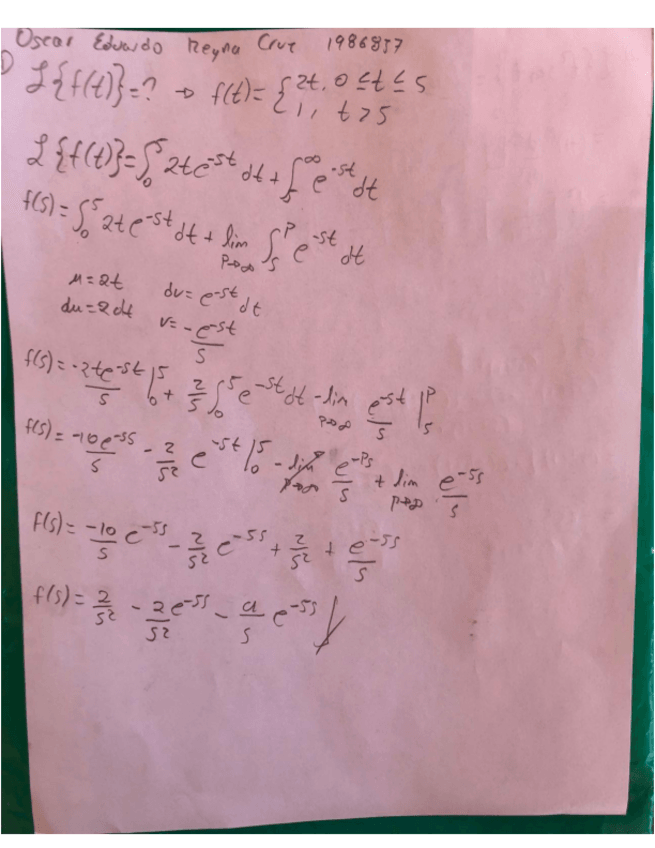 Oscar Eduardo Reyna Cruz 1986857
1) ℒ{f(t)}=? → f(t)= {2t, 0≤t≤5
1, t>5
ℒ{f(t)}=∫₀⁵ 2te^-st dt + ∫₅^∞ e^-st dt
f(s)=∫₀⁵ 2te^-st dt + lim p→∞ ∫₅^P e^-st dt
u=2t dv= e^-st dt
du=2dt v= -e^-st/s
f(s)= -2te^-st/s |₀⁵ + 2/s ∫₀⁵ e^-st dt - lim p→∞ e^-st/s |₅^P
f(s)= -10e^-5s/s - 2/s² e^-st |₀⁵ - lim p→∞ e^-Ps/s + lim p→∞ e^-5s/s
f(s)= -10/s e^-5s - 2/s² e^-5s + 2/s² + e^-5s/s
f(s)= 2/s² - 2e^-5s/s² - 9/s e^-5s